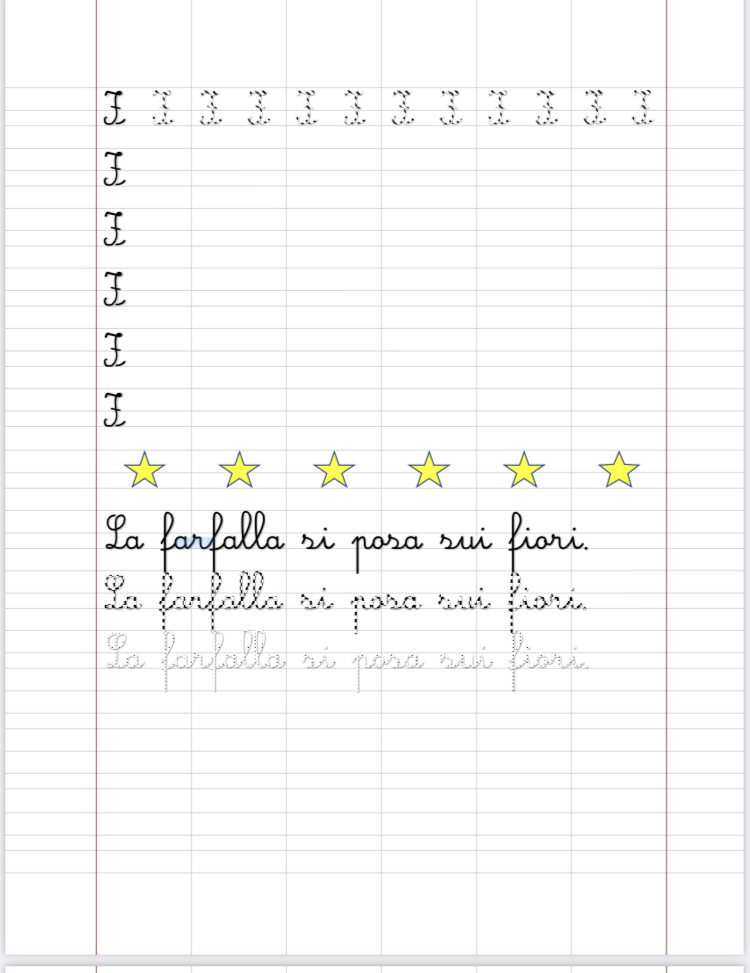 F F F F F F F F F F F F
F
F
F
F
F
La farfalla si posa sui fiori.
La farfalla si posa sui fiori.
La farfalla si posa sui fiori.